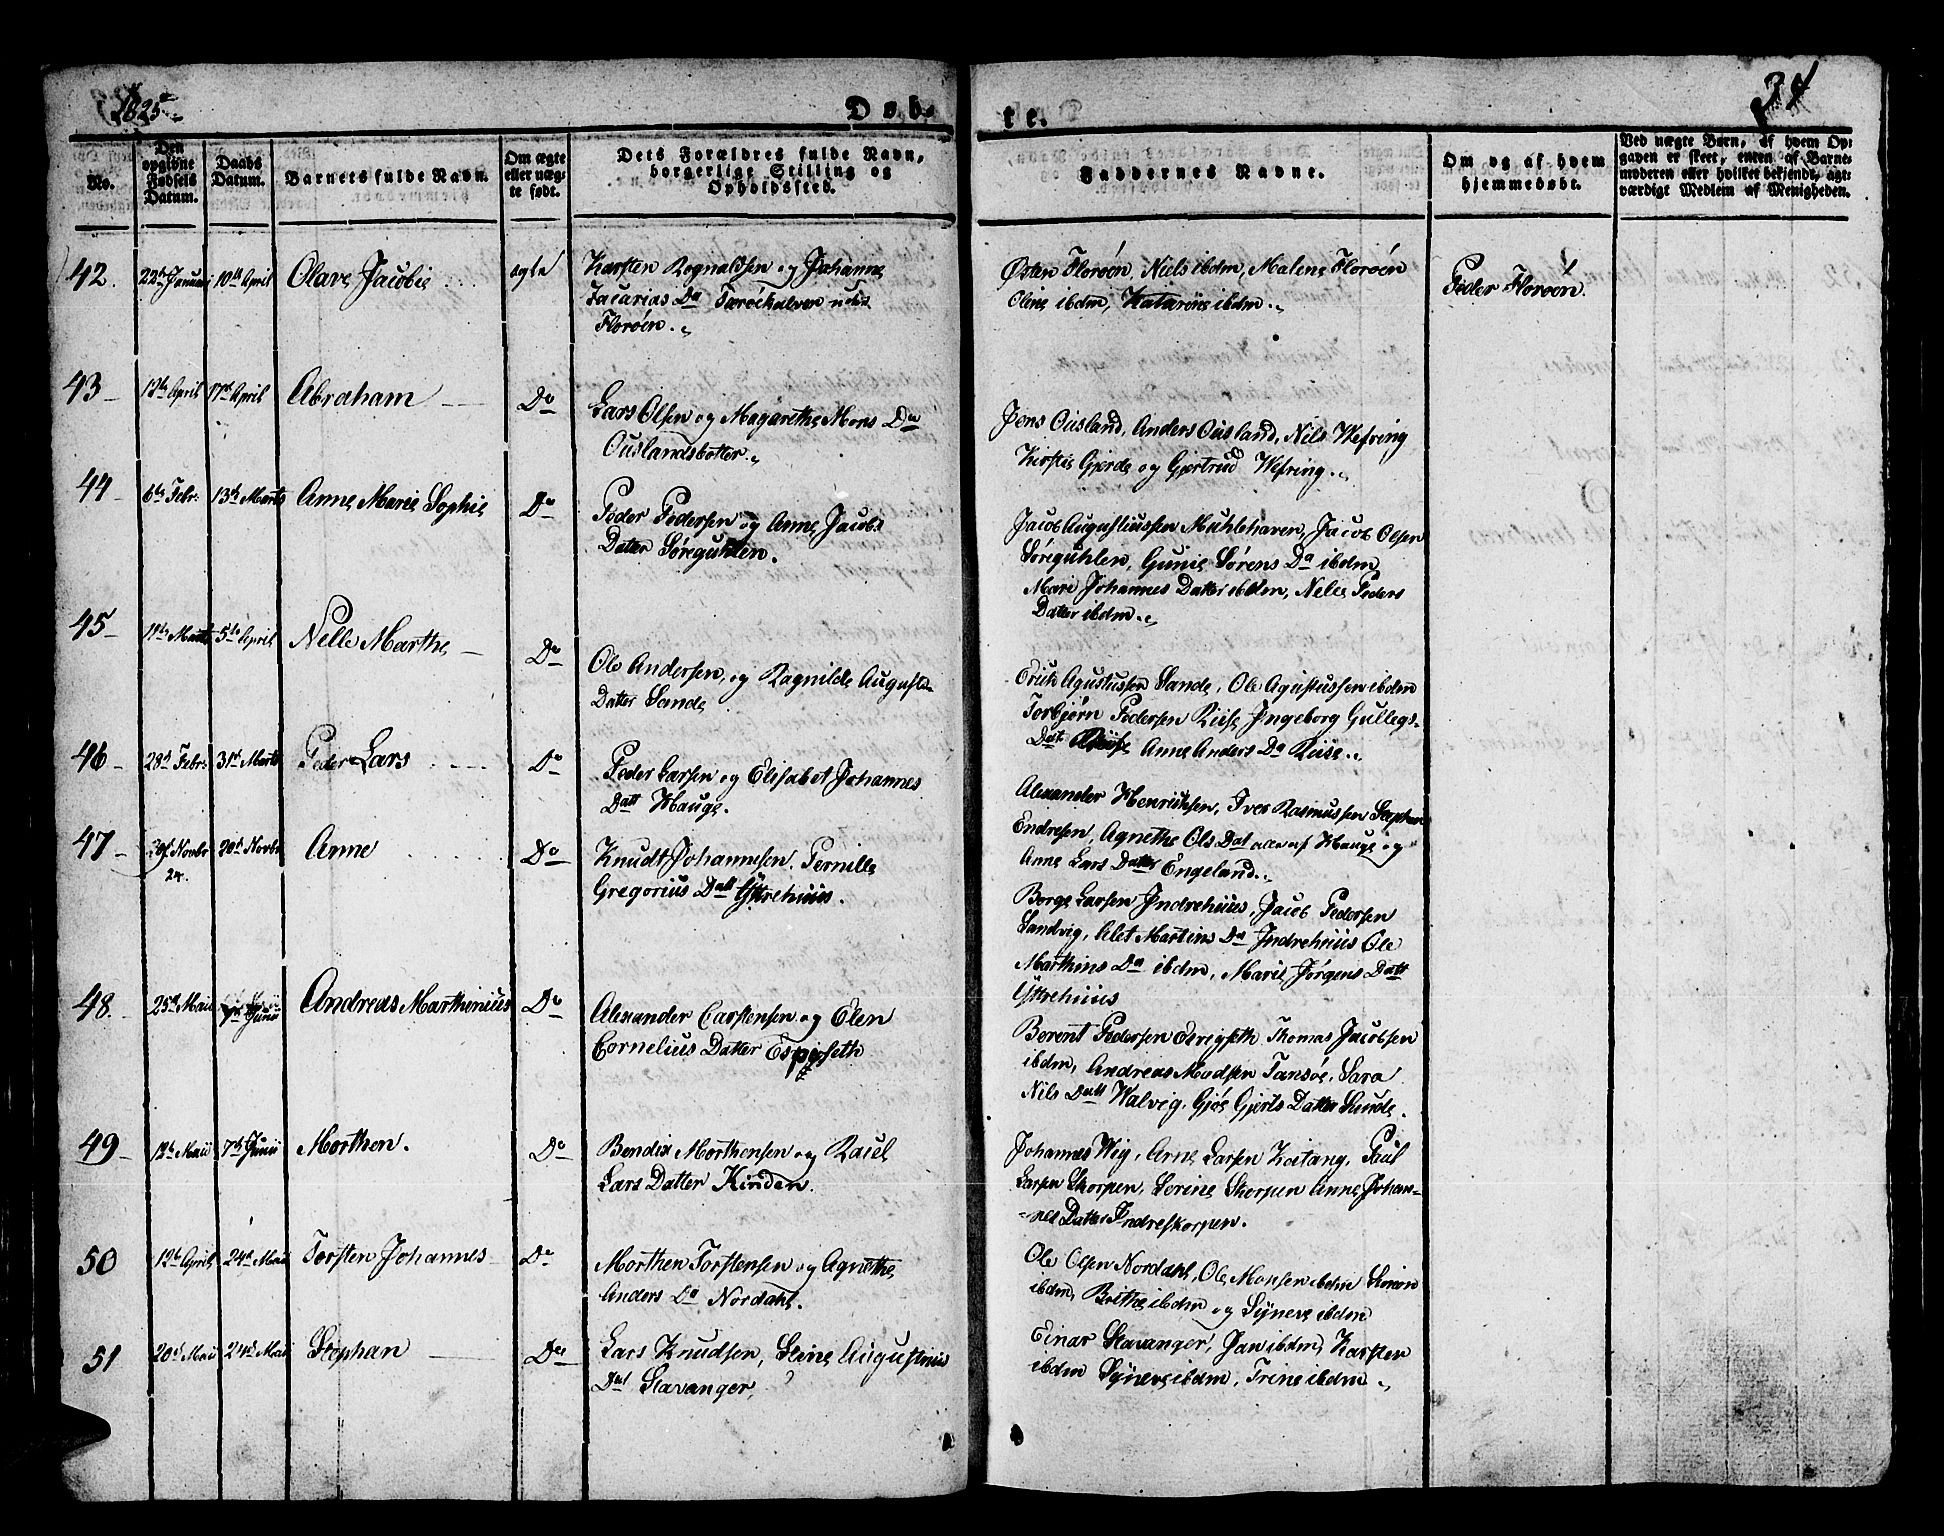 1825
Døb-
te.
34
No.
Den opgivne Fødsels Datum.
Daabs Datum.
Barnets fulde Navn.
Om ægte eller uægte født.
Dets Forældres fulde Navn, borgerlige Stilling og Opholdssted.
Faddernes Navne.
Om og af hvem hjemmedøbt.
Ved uægte Børn, af hvem Opgaven er skeet, enten af Barnemoderen eller hvilket bekjendt, agtværdigt Medlem af Menigheden.
42. 22de Januar 10de April Olave Jacobie ægte
Karsten Rognaldsen og Johanne
Zacarias Da Tærøekalven
Florøen.
Østen Florøen, Niels ibdm, Malene Florøen
Oline ibdm, ibdm.
Peder Florøen.
43 12te April 17de April Abraham Do
Lars Olsen og Magarethe Mons Da
Ouslandsbotten.
Jens Ousland, Anders Ousland, Nils Wefring
Kirstie Gjerde og Gjertrud Wefring.
44 6te Febr: 13de Marts Anne Marie Sophie Do
Peder Pedersen og Anne Jacobs
Datter Søreguhlen.
Jacob Augustiussen Muhlehavnen, Jacob Olsen
Søreguhlen, Gunie Sørens Da ibdm
Mari Johannes Datter ibdm, Nelle Peders
Datter ibdm.
45 Marts 5te April Nelle Marthe Do
Ole Andersen, og Ragnilde August
Datter Sande
Erick Agustussen Sande, Ole Agustussen ibdm
Torbjørn Pedersen Reise Ingeborg Gullegs
Datt Reise Anne Anders Da Reise.
46 28de Febr: 31de Marts Peder Lars Do
Peder Larsen og Elisabet Johannes
Datt Hauge.
Alexander Henricksen, Iver Rasmussen Stephan
Endresen, Agnethe Ols Dat alle af Hauge og
Anne Lars Datter Engeland.
47 Novbr 24. 20de Novbr Anne Do
Knudt Johannesen. Pernille
Gregorius Datt Yttrehuus.
Børge Larsen Indrehuus, Jacob Pedersen
Sandvig, Martins Da Indrehuus Ole
Marthins Da ibdm, Marie Jørgens Datt
Yttrehuus
48. 25de Maii Junii Andreas Marthinius Do
Alexander Carstensen og Elen
Cornelius Datter Espeseth
Berent Pedersen Thomas Jacobsen
ibdm, Andreas Madsen Tansøe, Sara
Nils Datt Walvig. Gjøe Gjerts Datter Sunde.
49 12te Maii 7de Junii Morthen. Do
Bendix Morthensen og Rakel
Lars Datter Kinden.
Johannes Wig, Arne Larsen Kaitang, Poul
Larsen Skorpen, Sorine Skorpen Anne Johan-
nes Datter Indreskorpen.
50 12te April 24de Maii Torsten Johannes Do
Morthen Torstensen og Agnethe
Anders Da Nordahl.
Ole Olsen Nordahl, Ole Monsen ibdm Simon
ibdm, Brithe ibdm og Syneve ibdm
51 20de Maii 24de Maii Stephan Do
Lars Knudsen, Stine Augustinus
Dat Stavanger,
Einar Stavanger, Jan ibdm, Karsten
ibdm Synneve ibdm, Trine ibdm